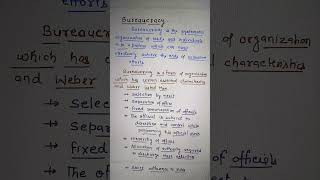 efforts
Bureaucracy
Bureaucracy is the systematic
organization of tasks and individuals
in a pattern which can most
effectively achieve the ends of collective
efforts
Bureaucracy is a form of organization
which has certain essential characteristics
and Weber listed them
→ Selection by merit
→ Separation of office
→ Fixed remuneration of officials
→ The official is subject to
discipline and control while
performing his official work
→ Hierarchy of offices
→ Allocation of authority required
to discharge these activities
→ Strict adherence to rules
Bureau
which has
and Weber
→ Selec
→ Separ
→ Fixed
→ The o
of organization
characteristics
of officials